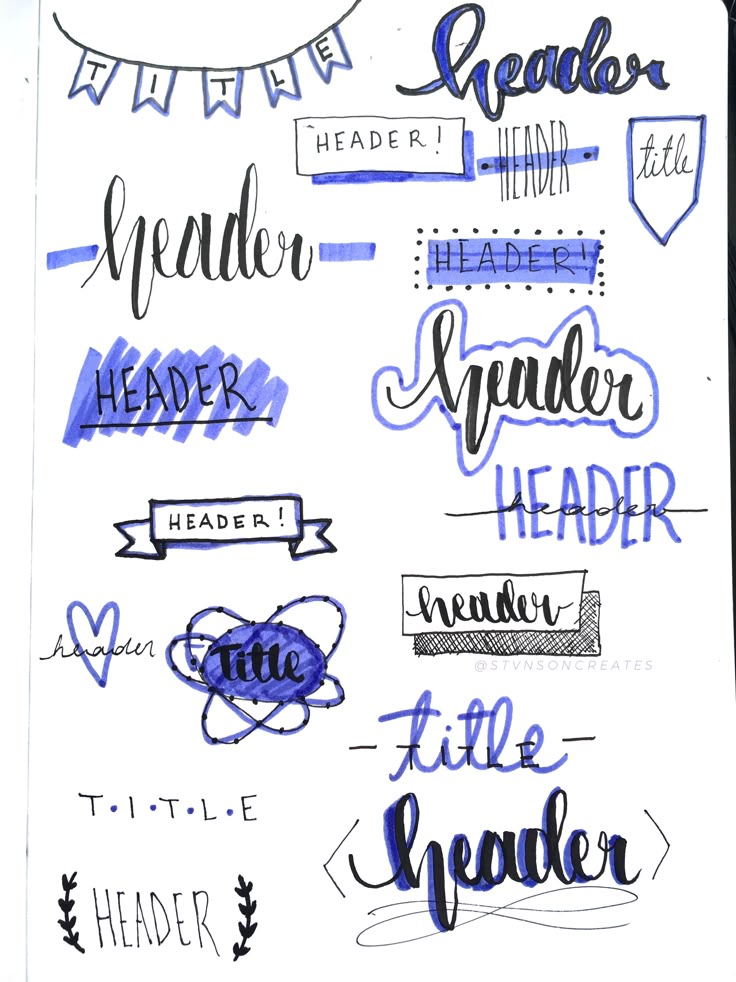 TITLE
header
HEADER!
HEADER
title
header
HEADER!
HEADER
header
HEADER
header
HEADER!
header
header
Title
@STVNSONCREATES
title
TITLE
T.I.T.L.E
header
HEADER